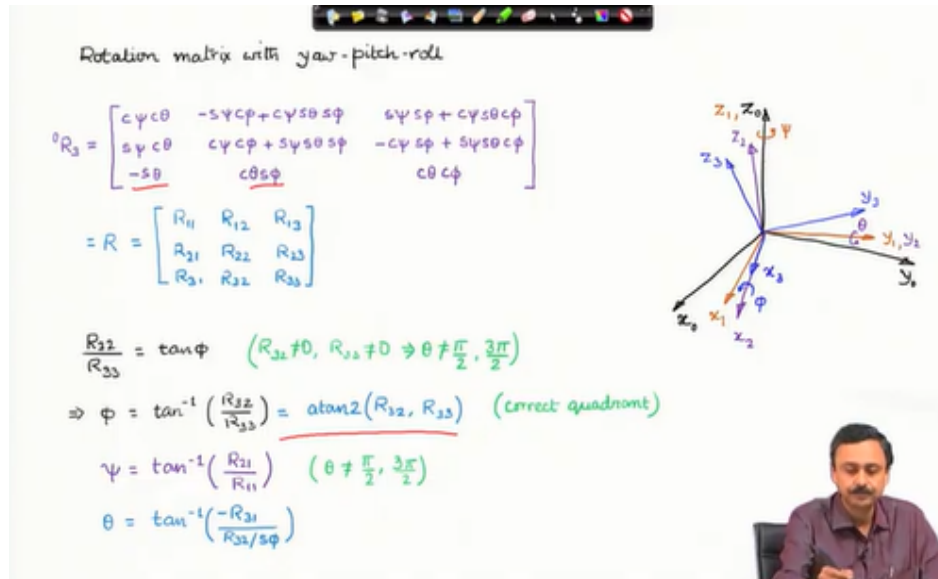 Rotation matrix with yaw-pitch-roll
⁰R₃ = [ cψcθ  -sψcφ+cψsθsφ  sψsφ+cψsθcφ
sψcθ  cψcφ+sψsθsφ  -cψsφ+sψsθcφ
-sθ  cθsφ  cθcφ ]
= R = [ R₁₁  R₁₂  R₁₃
R₂₁  R₂₂  R₂₃
R₃₁  R₃₂  R₃₃ ]
R₃₂/R₃₃ = tanφ  (R₃₂≠0, R₃₃≠0 ⇒ θ≠π/2, 3π/2)
⇒ φ = tan⁻¹(R₃₂/R₃₃) = atan2(R₃₂, R₃₃)  (correct quadrant)
ψ = tan⁻¹(R₂₁/R₁₁)  (θ≠π/2, 3π/2)
θ = tan⁻¹(-R₃₁/(R₃₂/sφ))
z₁, z₀
ψ
z₂
z₃
y₃
θ
y₁, y₂
y₀
x₃
φ
x₀
x₁
x₂